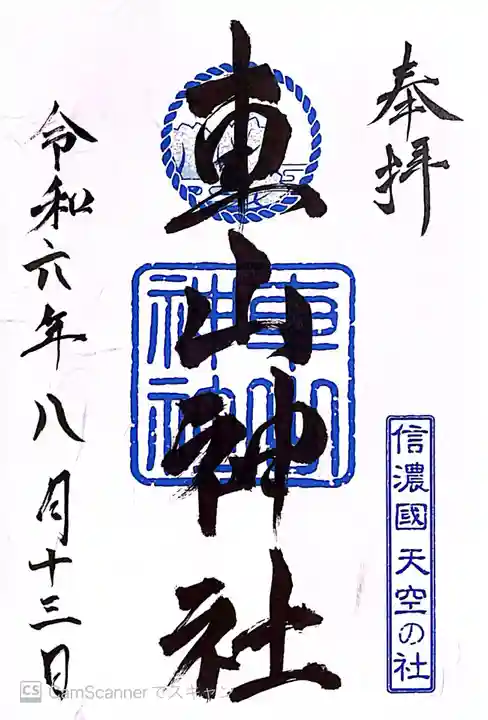 奉拝
信濃國 天空の社
東山神社
東山
神社
令和六年八月十三日
CS CamScanner でスキャン